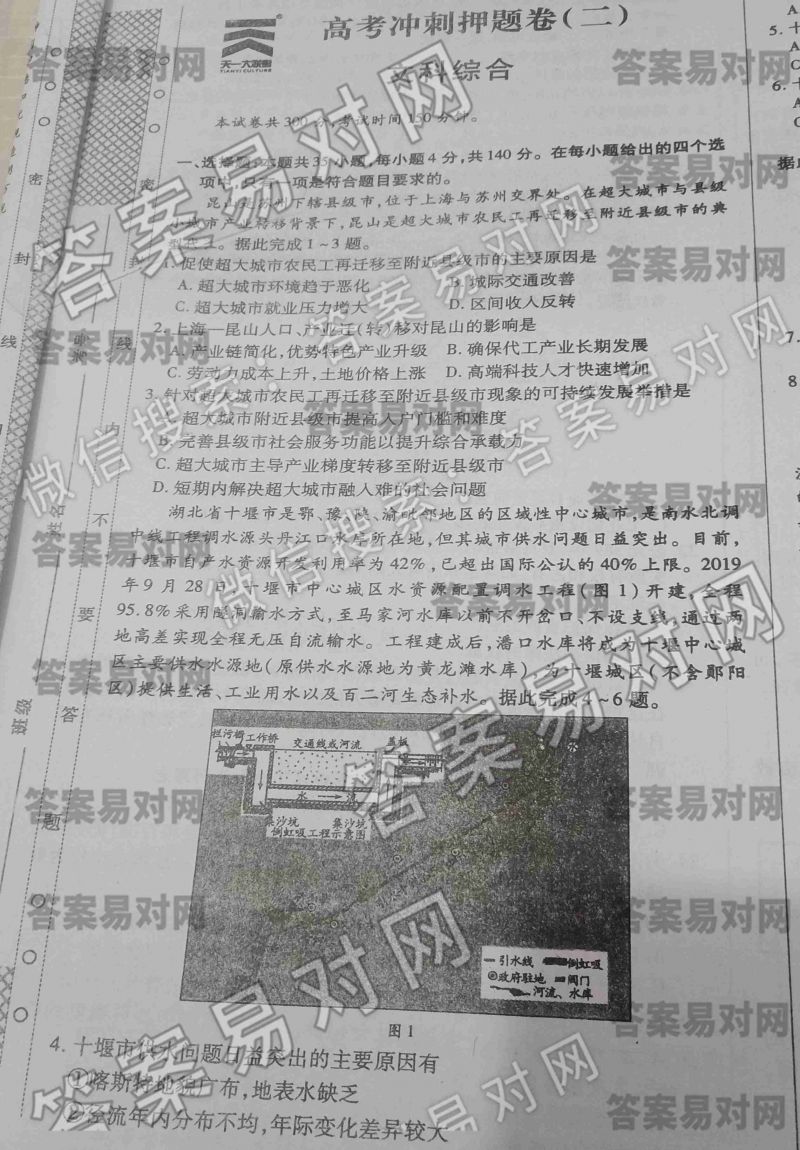 高考冲刺押题卷(二)
天一大联考
TIANYI CULTURE
文科综合
本试卷共300分,考试时间150分钟。
一、选择题:本题共35小题,每小题4分,共140分。在每小题给出的四个选
项中,只有一项是符合题目要求的。
昆山是苏州下辖县级市,位于上海与苏州交界处。在超大城市与县级
小城市产业转移背景下,昆山是超大城市农民工再迁移至附近县级市的典
型代表。据此完成1~3题。
1.促使超大城市农民工再迁移至附近县级市的主要原因是
A.超大城市环境趋于恶化 B.城际交通改善
C.超大城市就业压力增大 D.区间收入反转
2.上海—昆山人口、产业迁(转)移对昆山的影响是
A.产业链简化,优势特色产业升级 B.确保代工产业长期发展
C.劳动力成本上升,土地价格上涨 D.高端科技人才快速增加
3.针对超大城市农民工再迁移至附近县级市现象的可持续发展举措是
A.超大城市附近县级市提高入户门槛和难度
B.完善县级市社会服务功能以提升综合承载力
C.超大城市主导产业梯度转移至附近县级市
D.短期内解决超大城市融入难的社会问题
湖北省十堰市是鄂、豫、陕、渝毗邻地区的区域性中心城市,是南水北调
中线工程调水源头丹江口水库所在地,但其城市供水问题日益突出。目前,
十堰市自产水资源开发利用率为42%,已超出国际公认的40%上限。2019
年9月28日,十堰市中心城区水资源配置调水工程(图1)开建,全程
95.8%采用隧洞输水方式,至马家河水库以前不开岔口、不设支线,通过两
地高差实现全程无压自流输水。工程建成后,潘口水库将成为十堰中心城
区主要供水水源地(原供水水源地为黄龙滩水库),为十堰城区(不含郧阳
区)提供生活、工业用水以及百二河生态补水。据此完成4~6题。
拦污栅 工作桥 交通线或河流 盖板
水 流
集沙坑 集沙坑
倒虹吸工程示意图
引水线 倒虹吸
政府驻地 闸门
河流、水库
图1
4.十堰市供水问题日益突出的主要原因有
①喀斯特地貌广布,地表水缺乏
②径流年内分布不均,年际变化差异较大
密
封
线
内
不
要
答
题
姓名
班级
答案易对网
微信搜索:答案易对网